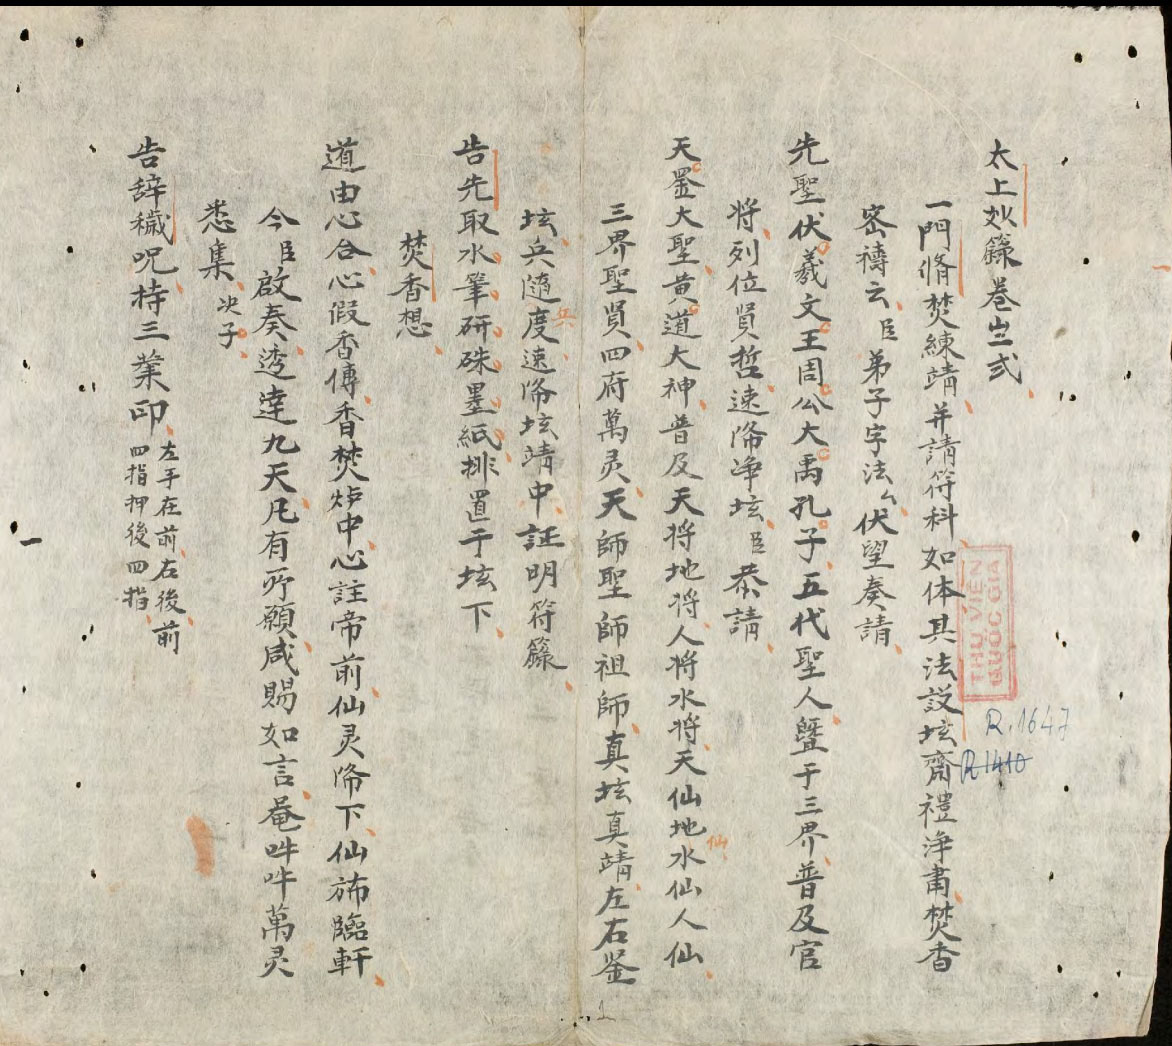 太上籙卷弍
一門脩焚練靖并請符科如体具法設坛齋禮净肅焚香
宻禱云臣弟子字法厶伏望奏請
先聖伏羲文王周公大禹孔子五代聖人曁于三界普及官
将列位賢哲速降净坛臣恭請
天罡大聖黄道大神普及天将地将人将水将天仙地水仙人仙
仙
三界聖賢四府萬灵天師聖師祖師真坛真靖左右鉴
坛兵隨度速降坛靖中証明符籙
兵
告先取水筆研硃墨紙排置于坛下
焚香想
道由心合心假香傳香焚炉中心註帝前仙灵降下仙斾臨軒
今臣啟奏透達九天凡有所願咸賜如言菴吽吽萬灵
悉集决子
告辞穢呪持三業印左手在前右後前
四指押後四指
THƯ VIỆN
QUỐC GIA
R.1647
R1410
1